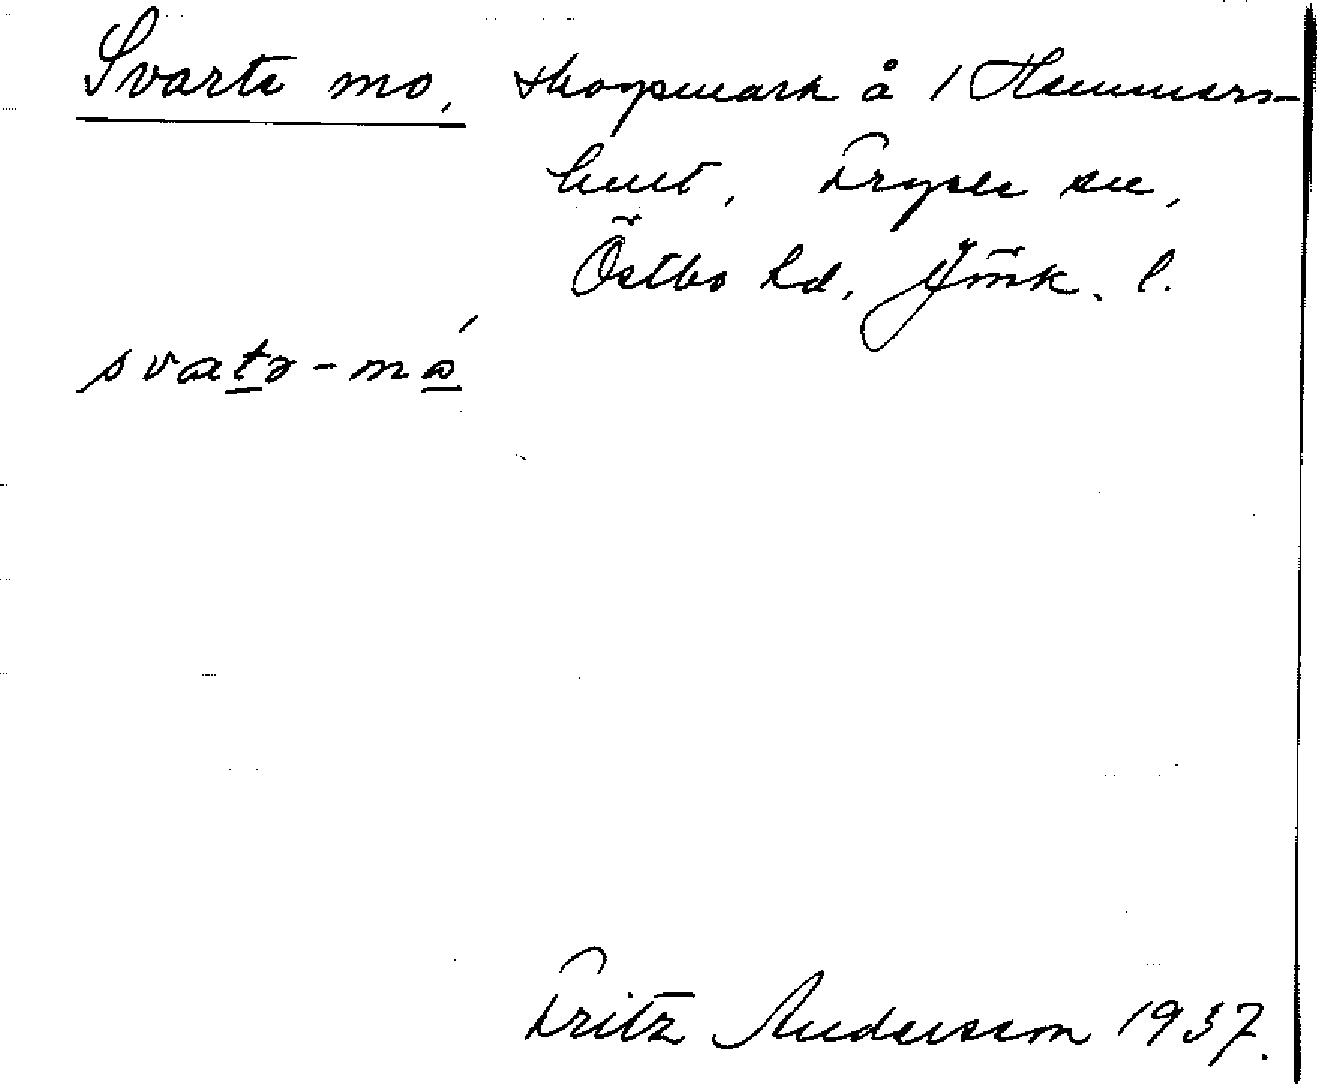 Svarte mo, skogsmark å 1 Hammars-
hult, Fryele sn,
Östbo hd, Jönk. l.
svatə-mó
Fritz Andersson 1937.